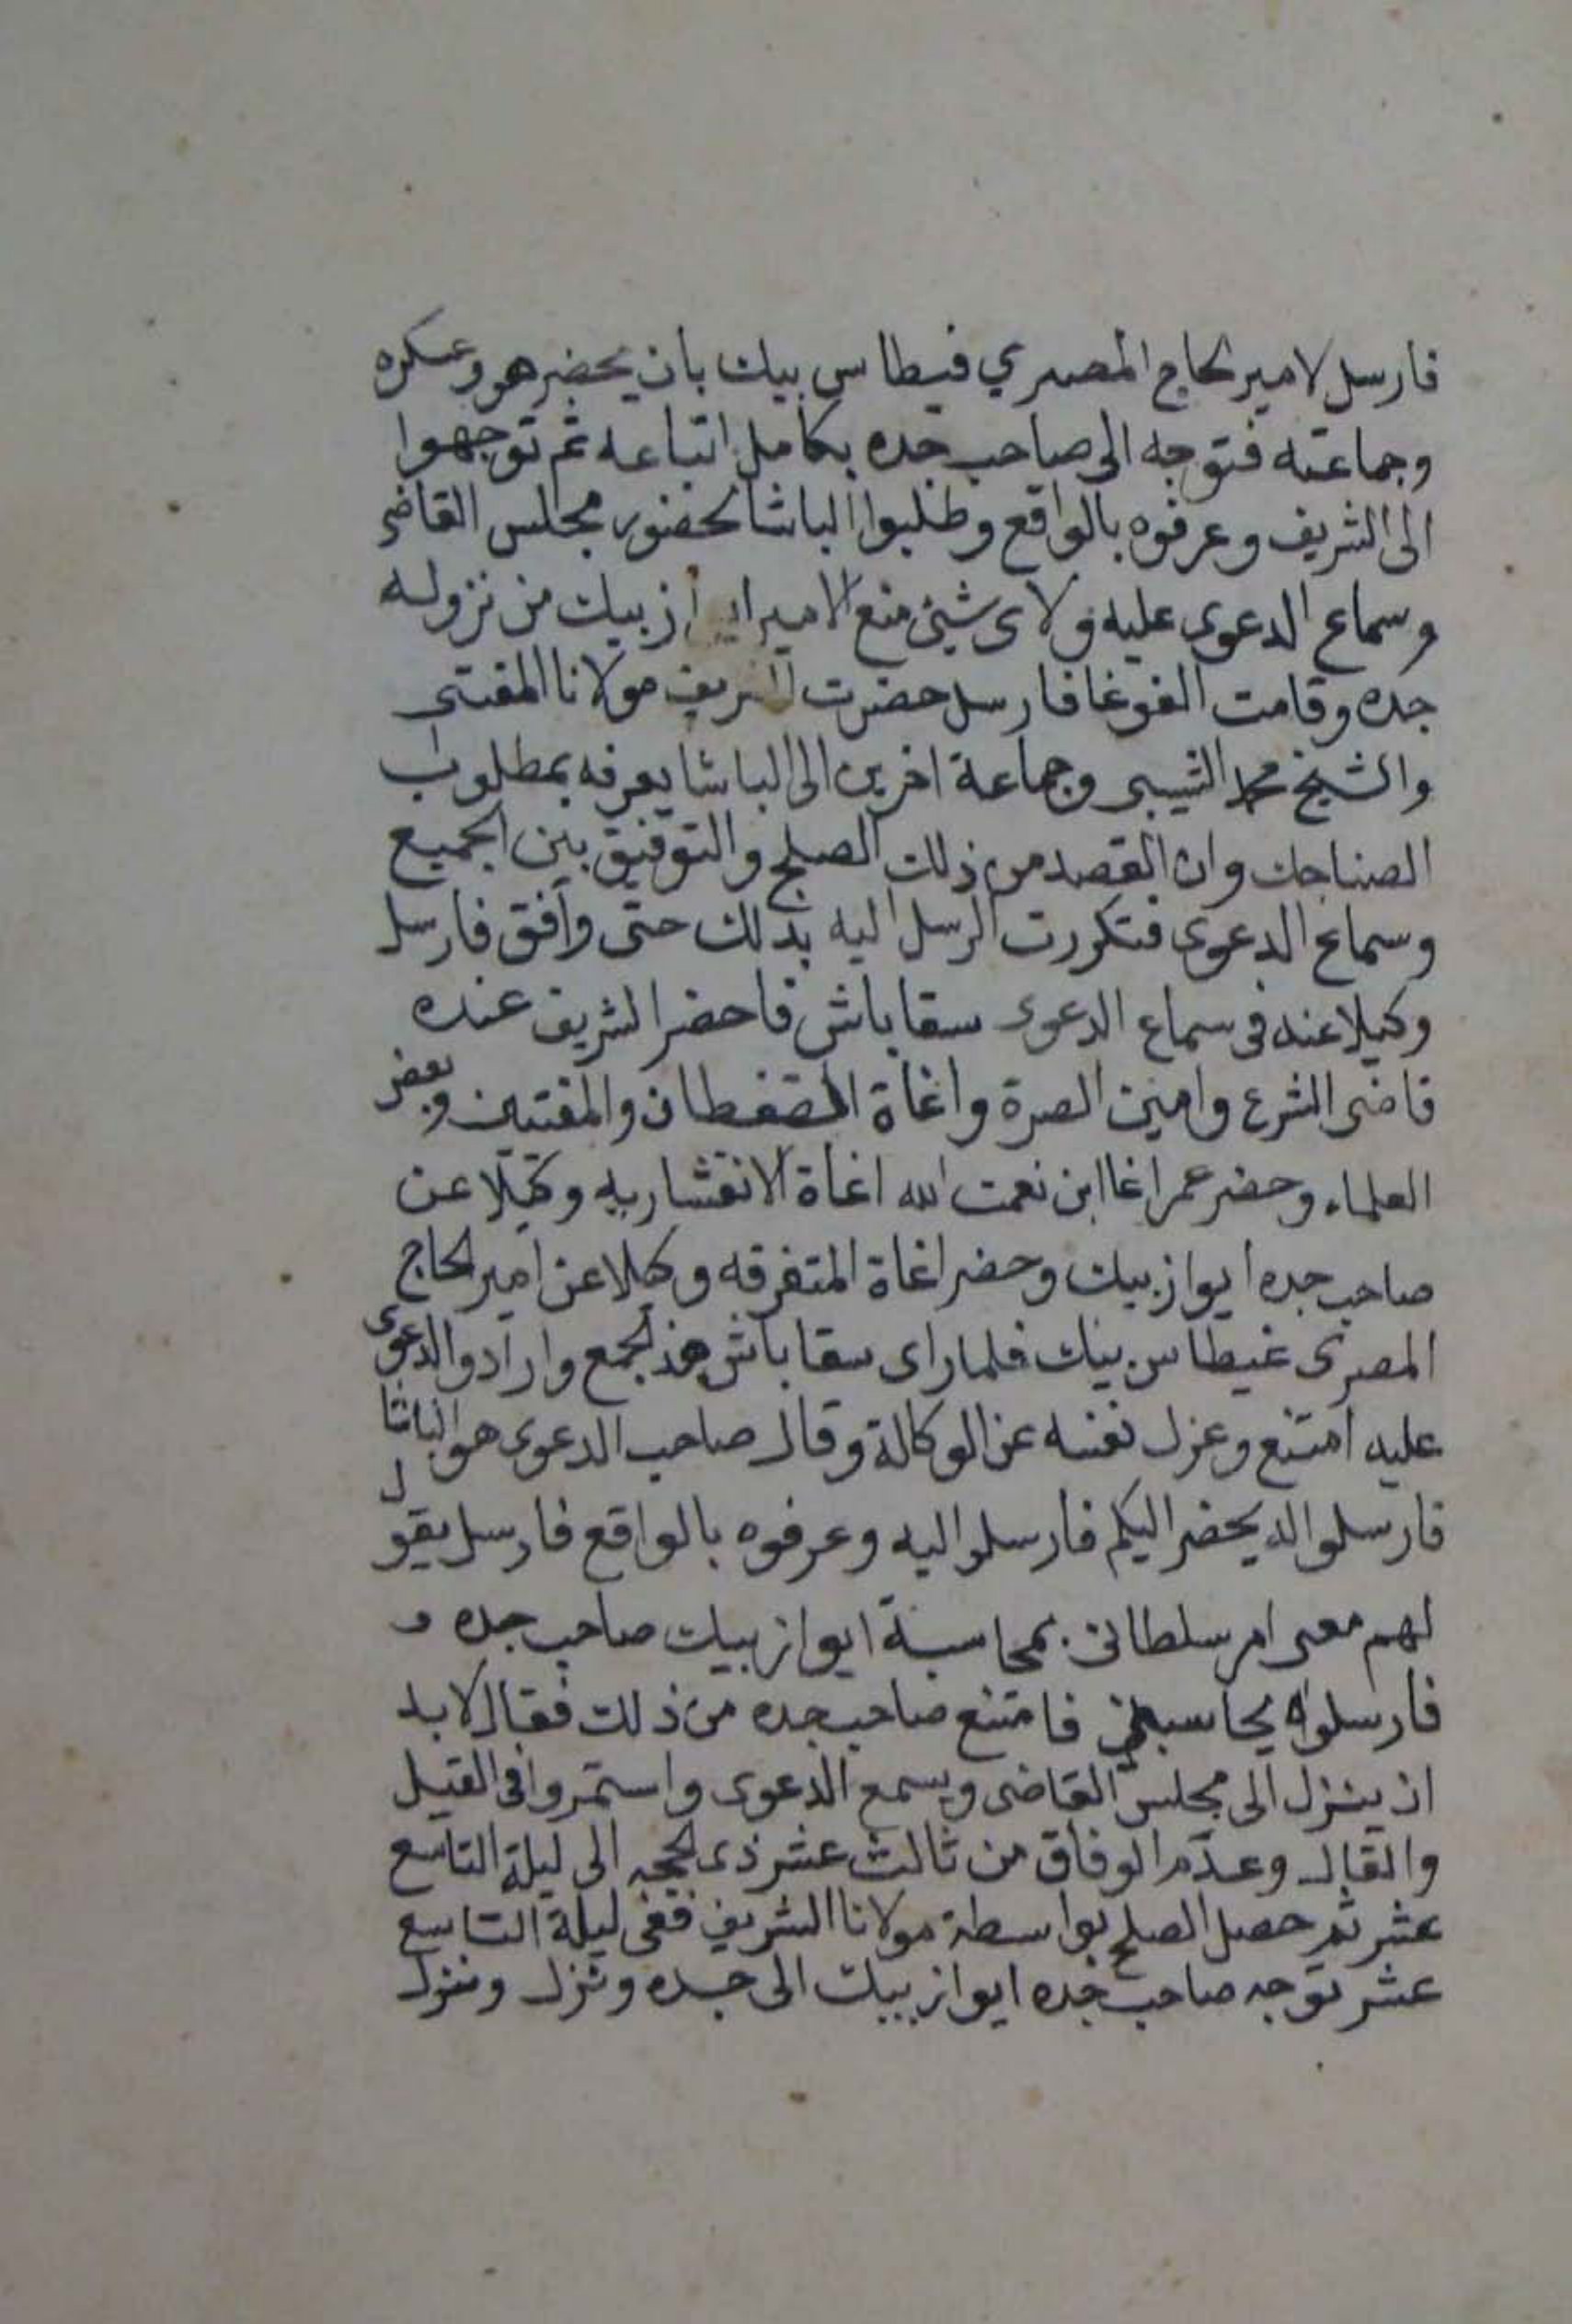 فارسل لامير الحاج المصري قيطاس بيك بان يحضر هو وعسكره
وجماعته فتوجه الى صاحب جده بكامل اتباعه ثم توجهوا
الى الشريف وعرفوه بالواقع وطلبوا الباشا لحضور مجلس القاضى
وسماع الدعوى عليه ولاى شيئ منع الامير ايواز بيك من نزوله
جده وقامت الغوغا فارسل حضرت الشريف مولانا المفتى
والشيخ محمد الشيبى وجماعة اخرين الى الباشا يعرفه بمطلوب
الصناجك وان القصد من ذلك الصلح والتوفيق بين الجميع
وسماع الدعوى فتكررت الرسل اليه بذلك حتى وافق فارسل
وكيلا عنه فى سماع الدعوى سقا باش فاحضر الشريف عنده
قاضى الشرع وامين الصرة واغاة القفطان والمفتيين وبعض
العلماء وحضر عمر اغا ابن نعمت الله اغاة الانقشاريه وكيلا عن
صاحب جده ايواز بيك وحضر اغاة المتفرقه وكيلا عن امير الحاج
المصرى غيطاس بيك فلما راى سقا باش هذ الجمع وارادو الدعوى
عليه امتنع وعزل نفسه عن الوكالة وقال صاحب الدعوى هو الباشا
فارسلوا له يحضر اليكم فارسلوا اليه وعرفوه بالواقع فارسل يقول
لهم معى امر سلطانى بمحاسبة ايواز بيك صاحب جده و
فارسلوه يحاسبنى فامتنع صاحب جده من ذلك فقال لابد
ان ينزل الى مجلس القاضى ويسمع الدعوى واستمروا فى القيل
والقال وعدم الوفاق من ثالث عشر ذى الحجه الى ليلة التاسع
عشر ثم حصل الصلح بواسطة مولانا الشريف ففى ليلة التاسع
عشر توجه صاحب جده ايواز بيك الى جده ونزل ونزل